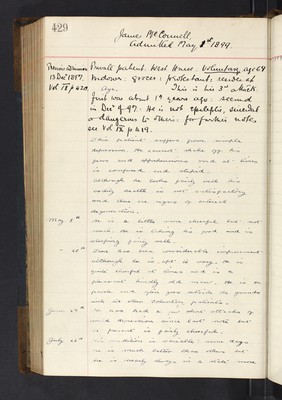 429
James McConnell
Admitted May 1st 1899.
Previous Admission Private patient. West House: Voluntary, age 64
13 Dec 1897. Widower: grocer: protestant:
Vol IX p 420. Age. This is his 3rd attack
first was about years ago: second
in Dec of 97: He is not epileptic, suicidal
or dangerous to others: for further notes
see Vol IX p 419.
This patient suffers from simple
depression. He cannot shake off his
fears and apprehensions and at times
is confused and stupid.
Although he looks fairly well his
bodily health is not satisfactory
and there are signs of arterial
degeneration.
May 8th He is a little more cheerful but not
much. He is taking his food and is
sleeping fairly well.
There has been considerable improvement
although he is apt to vary. He is
quite cheerful at times and is a
pleasant kindly old man. He is on
parole and goes about outside the grounds
with the other voluntary patients.
June has had a few short attacks of
mild depression since last note but
at present is fairly cheerful.
July condition is variable some days
he is much better than others but
he is nearly always in a state more